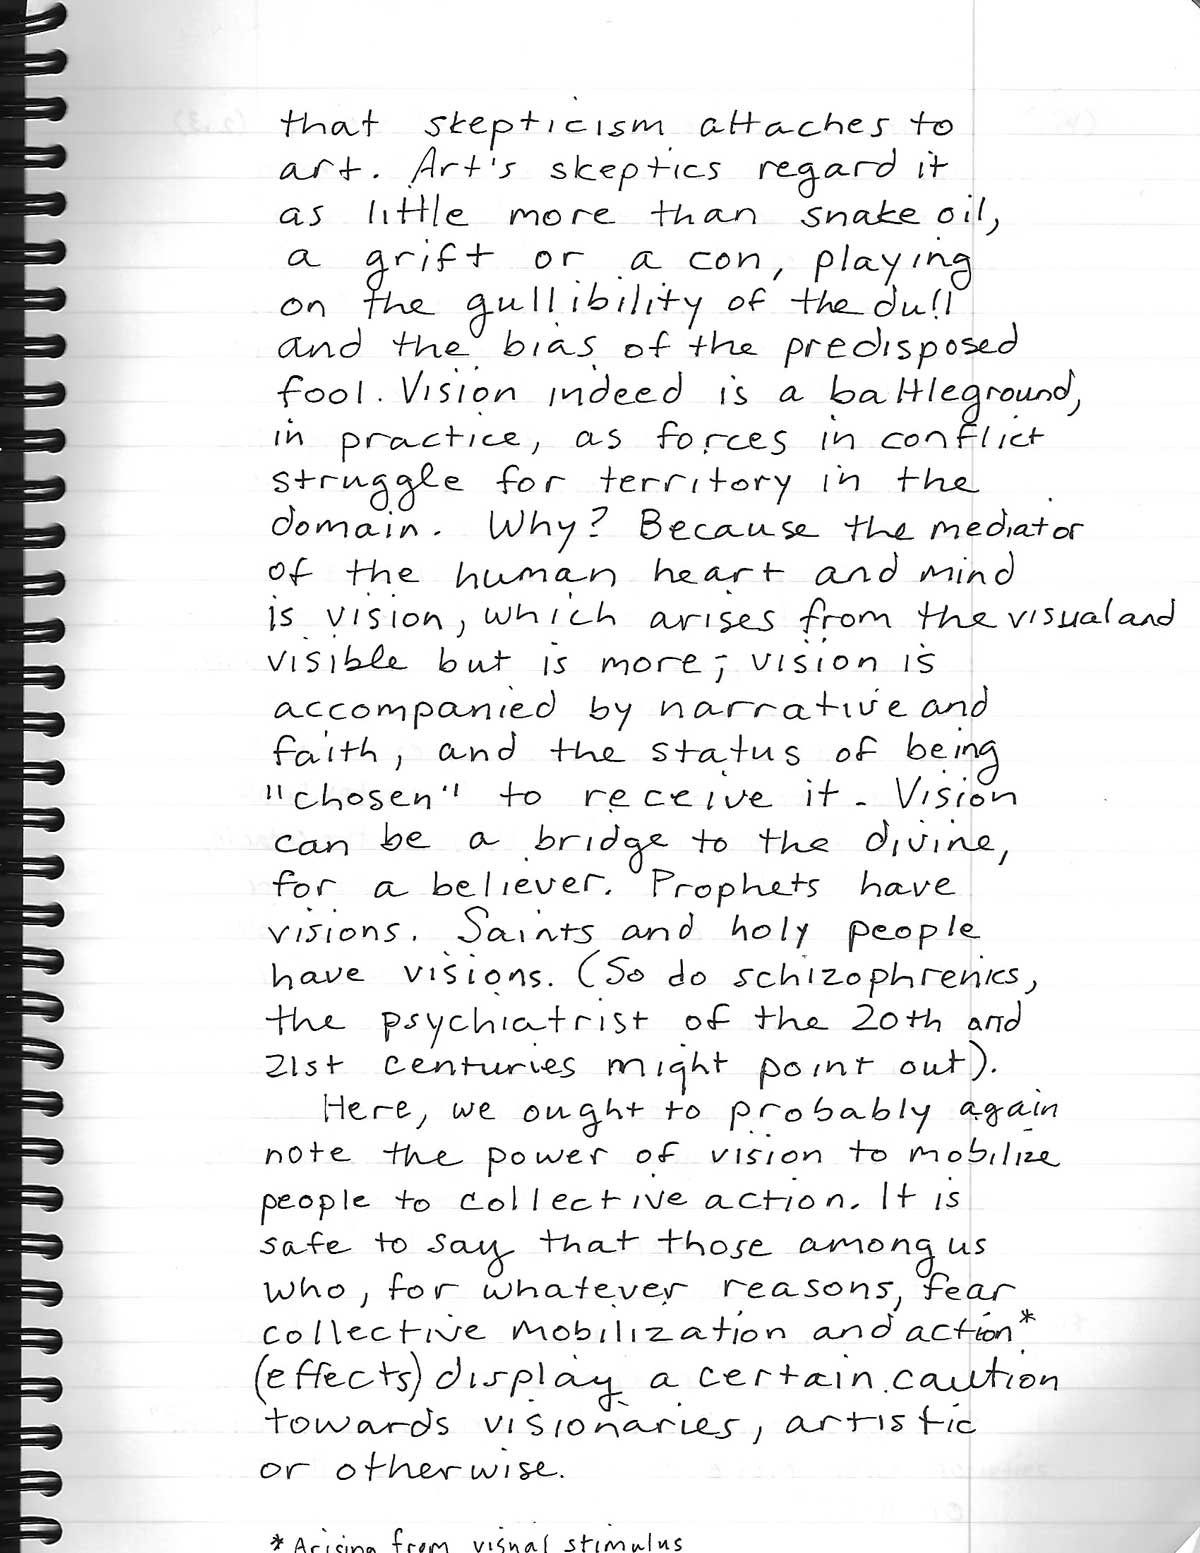 that skepticism attaches to
art. Art's skeptics regard it
as little more than snake oil,
a grift or a con, playing
on the gullibility of the dull
and the bias of the predisposed
fool. Vision indeed is a battleground,
in practice, as forces in conflict
struggle for territory in the
domain. Why? Because the mediator
of the human heart and mind
is vision, which arises from the visual and
visible but is more; vision is
accompanied by narrative and
faith, and the status of being
"chosen" to receive it. Vision
can be a bridge to the divine,
for a believer. Prophets have
visions. Saints and holy people
have visions. (So do schizophrenics,
the psychiatrist of the 20th and
21st centuries might point out).
Here, we ought to probably again
note the power of vision to mobilize
people to collective action. It is
safe to say that those among us
who, for whatever reasons, fear
collective mobilization and action*
(effects) display a certain caution
towards visionaries, artistic
or otherwise.
* Arising from visual stimulus